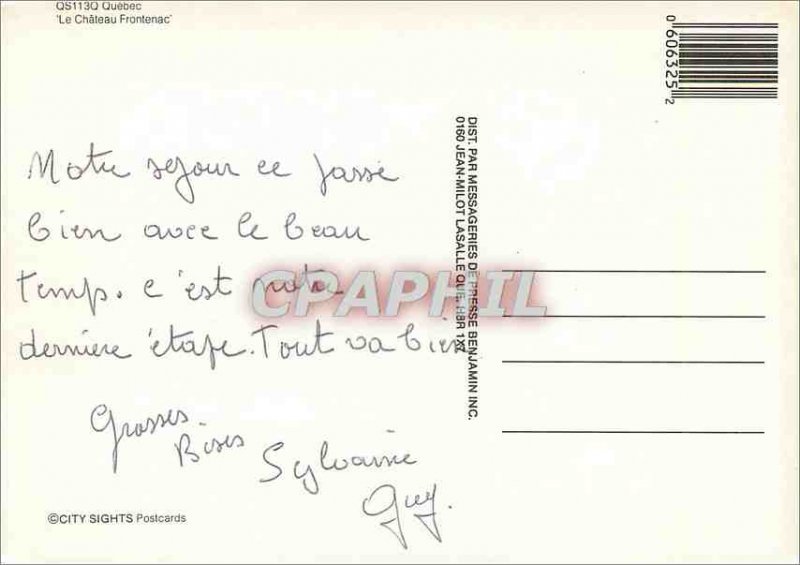 QS113Q Québec
'Le Château Frontenac'
0 606325 2
Notre sejour ce passe
bien avec le beau
temps. c'est notre
dernière étape. Tout va bien
Grosses.
Bises
Sylvaine
Guy.
DIST. PAR MESSAGERIES DE PRESSE BENJAMIN INC.
0160 JEAN-MILOT LASALLE QUE. H8R 1X7
CPAPHIL
©CITY SIGHTS Postcards